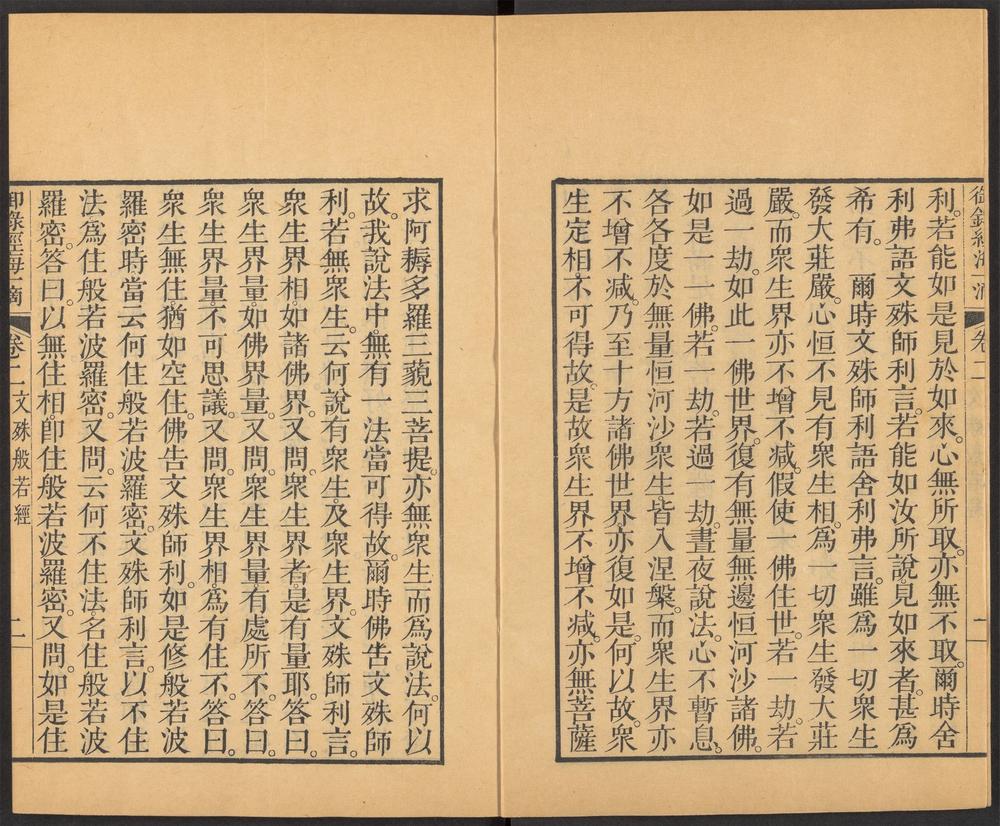 御錄經海一滴 卷二 一
利。若能如是見於如來。心無所取。亦無不取。爾時舍
利弗語文殊師利言。若能如汝所說。見如來者。甚爲
希有。　爾時文殊師利語舍利弗言。雖爲一切衆生
發大莊嚴。心恒不見有衆生相。爲一切衆生發大莊
嚴。而衆生界亦不增不減。假使一佛住世。若一劫。若
過一劫。如此一佛世界。復有無量無邊恒河沙諸佛。
如是一一佛。若一劫。若過一劫。晝夜說法。心不暫息。
各各度於無量恒河沙衆生。皆入涅槃。而衆生界亦
不增不減。乃至十方諸佛世界。亦復如是。何以故。衆
生定相不可得故。是故衆生界不增不減。亦無菩薩
求阿耨多羅三藐三菩提。亦無衆生而爲說法。何以
故。我說法中。無有一法當可得故。爾時佛吿文殊師
利。若無衆生。云何說有衆生及衆生界。文殊師利言。
衆生界相。如諸佛界。又問。衆生界者。是有量耶。答曰。
衆生界量。如佛界量。又問。衆生界量。有處所不。答曰。
衆生界量。不可思議。又問。衆生界相。爲有住不。答曰。
衆生無住。猶如空住。佛告文殊師利。如是修般若波
羅密時。當云何住般若波羅密。文殊師利言。以不住
法。爲住般若波羅密。又問。云何不住法。名住般若波
羅密。答曰。以無住相。卽住般若波羅密。又問。如是住
御錄經海一滴 卷二 文殊般若經 二